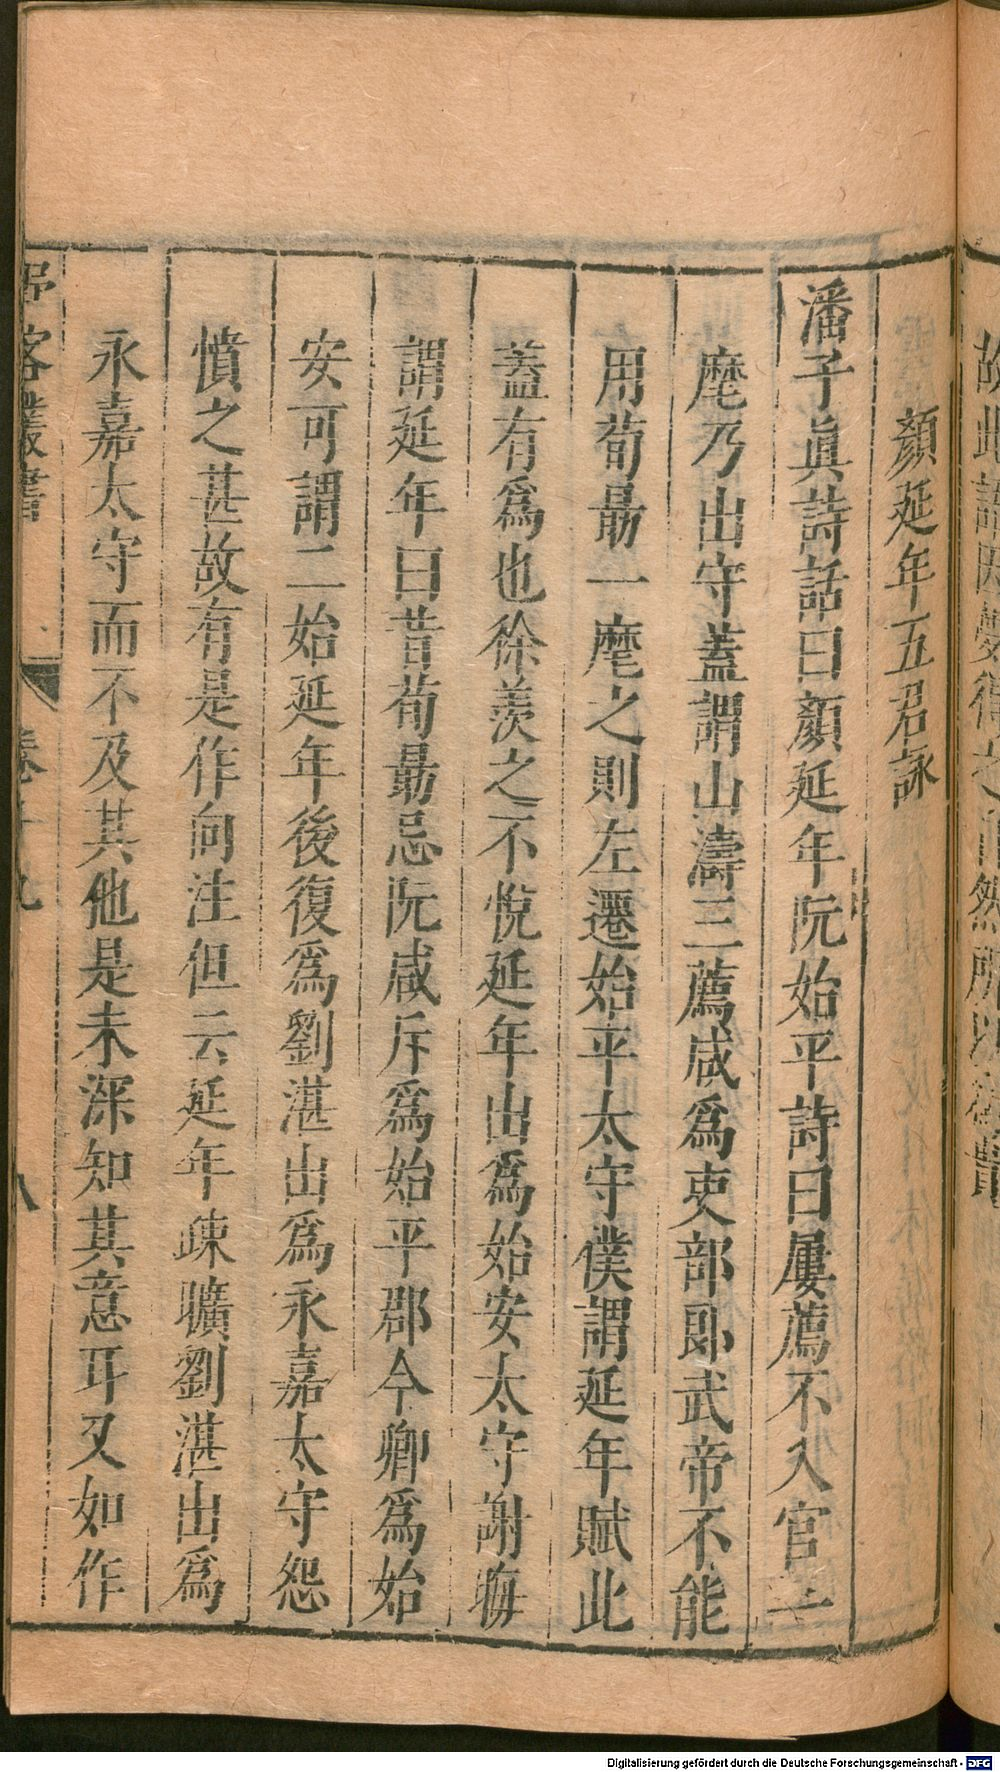 顏延年五君詠
潘子眞詩話曰顏延年阮始平詩曰屢薦不入官一
麾乃出守蓋謂山濤三薦咸爲吏部郎武帝不能
用荀勗一麾之則左遷始平太守僕謂延年賦此
蓋有爲也徐羨之不悅延年出爲始安太守謝晦
謂延年曰昔荀勗忌阮咸斥爲始平郡今卿爲始
安可謂二始延年後復爲劉湛出爲永嘉太守怨
憤之甚故有是作向注但云延年疎曠劉湛出爲
永嘉太守而不及其他是未深知其意耳又如作
野客叢書
卷十九
八
Digitalisierung gefördert durch die Deutsche Forschungsgemeinschaft - DFG